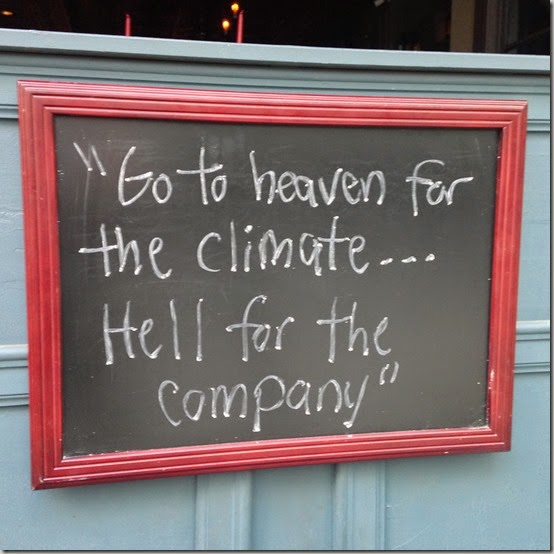 "Go to heaven for
the climate...
Hell for the
company"